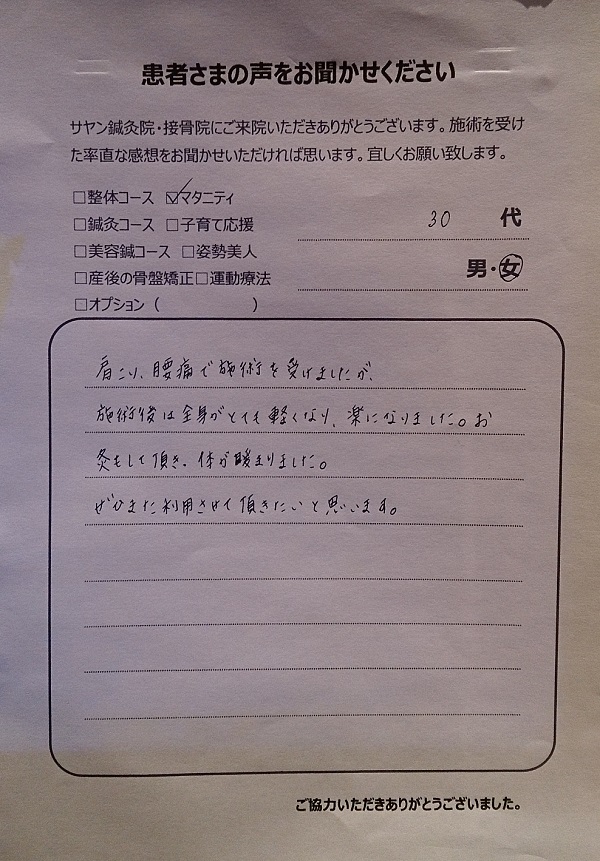 患者さまの声をお聞かせください
サヤン鍼灸院・接骨院にご来院いただきありがとうございます。施術を受け
た率直な感想をお聞かせいただければ思います。宜しくお願い致します。
□整体コース ☑マタニティ
□鍼灸コース □子育て応援
30 代
□美容鍼コース □姿勢美人
男・女
□産後の骨盤矯正□運動療法
□オプション（ ）
肩こり、腰痛で施術を受けましたが、
施術後は全身がとても軽くなり、楽になりました。お
灸もして頂き、体が暖まりました。
ぜひまた利用させて頂きたいと思います。
ご協力いただきありがとうございました。